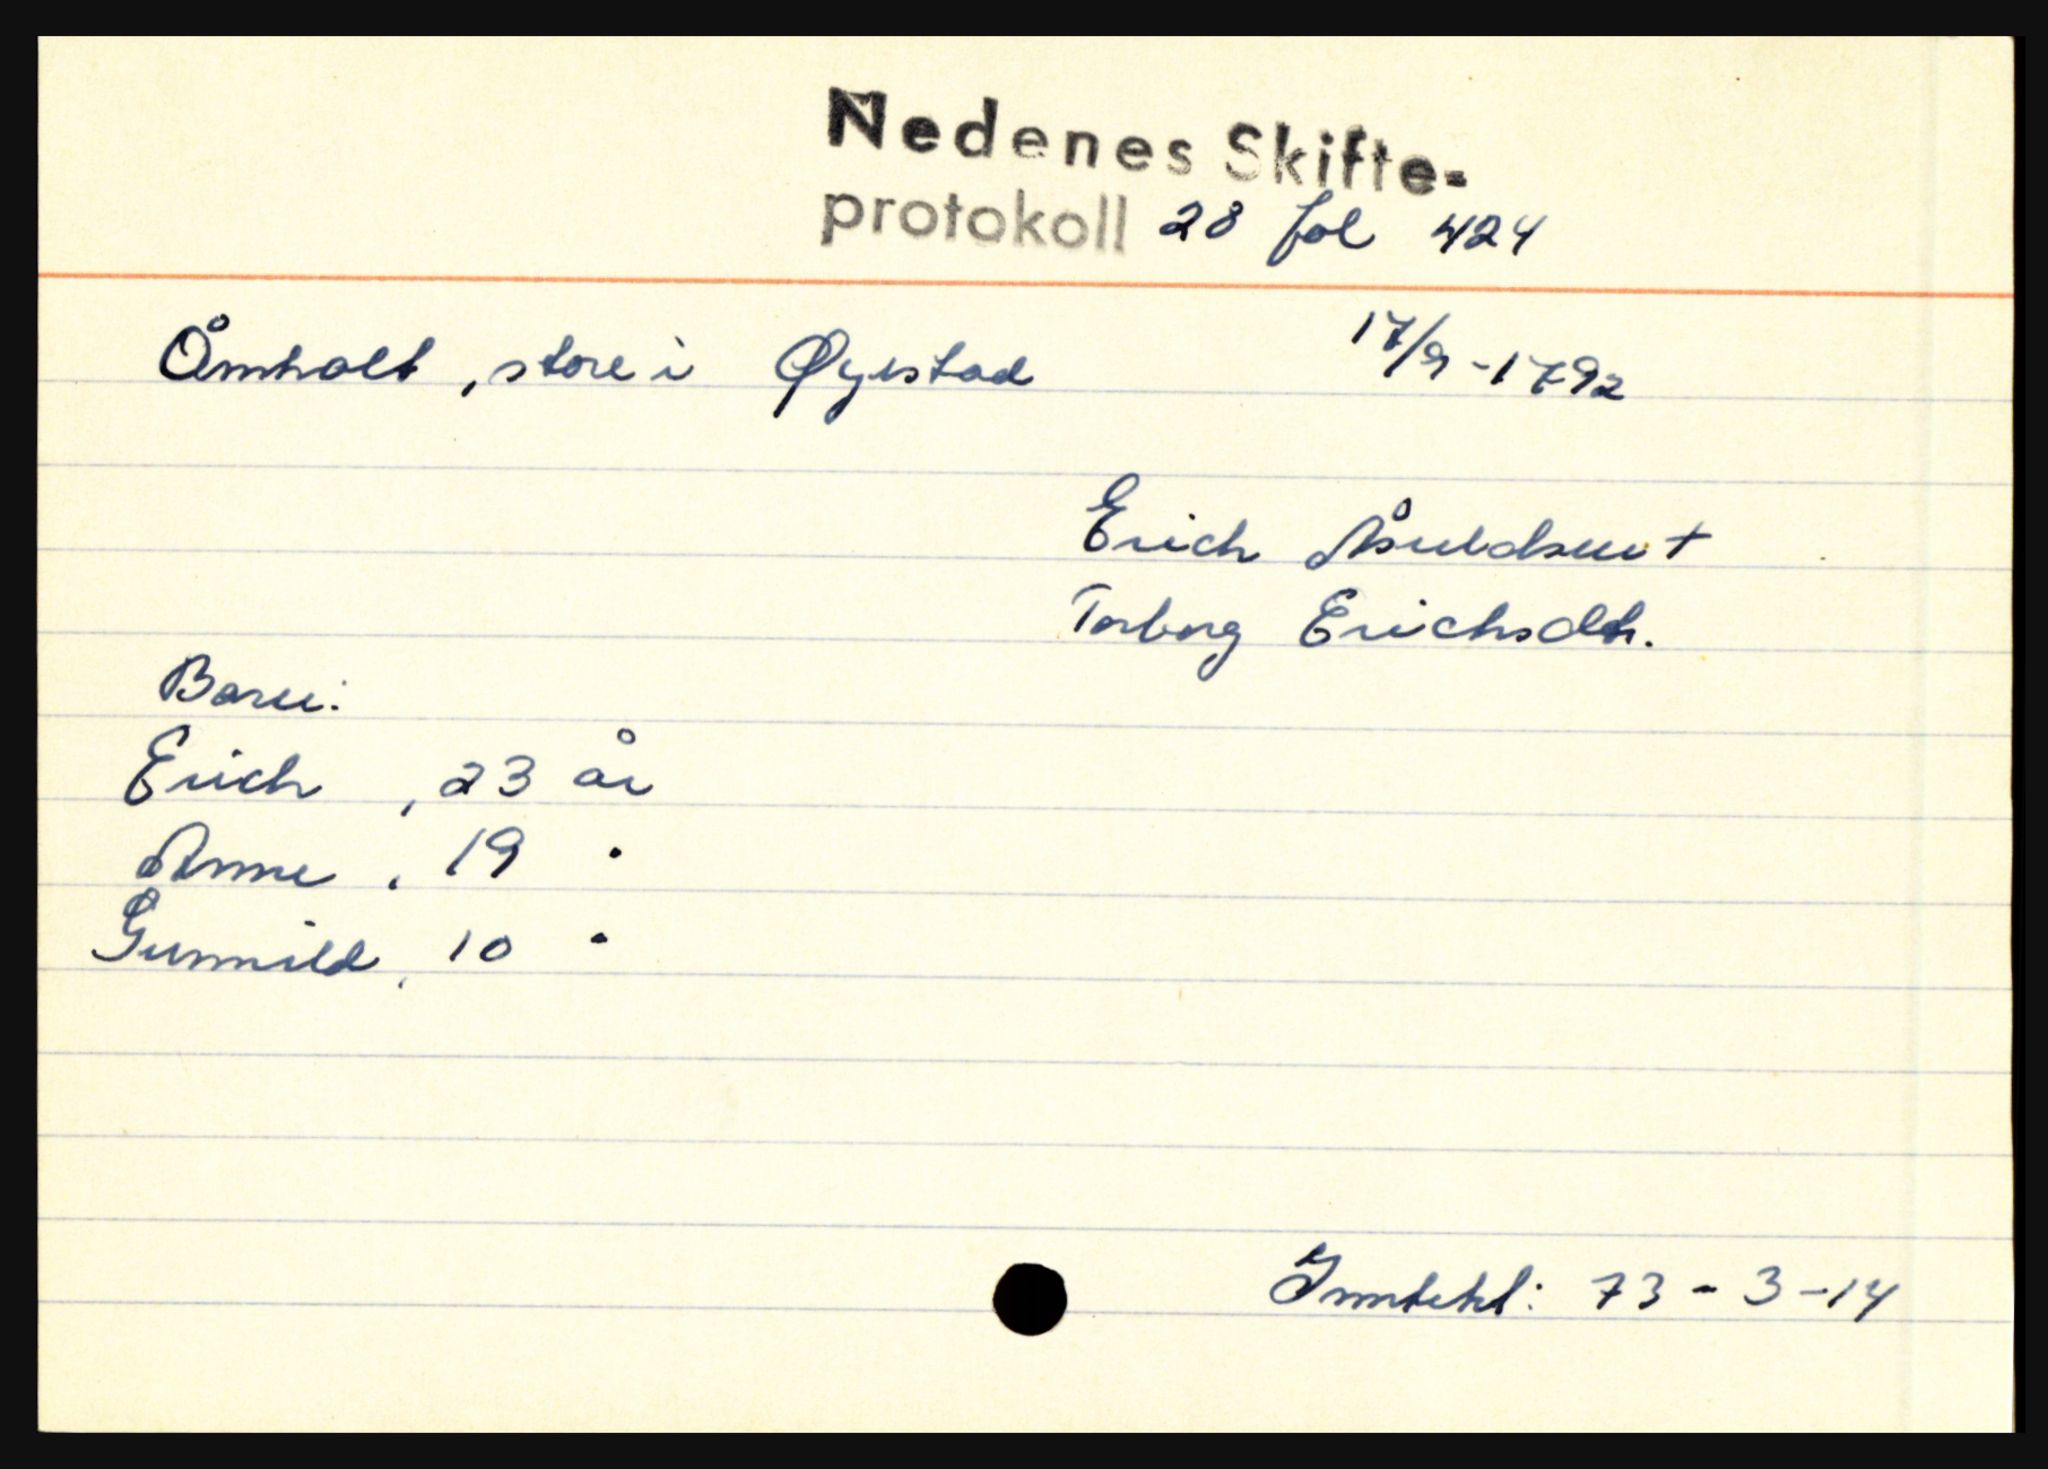 Nedenes Skifte-
protokoll 28 fol 424
Åmholt, store i Øyestad 17/9-1792
Erich Åsuldsen +
Torborg Erichsdtr.
Barn:
Erich, 23 år
Anne, 19 "
Gunnild, 10 "
Inntekt: 73-3-14